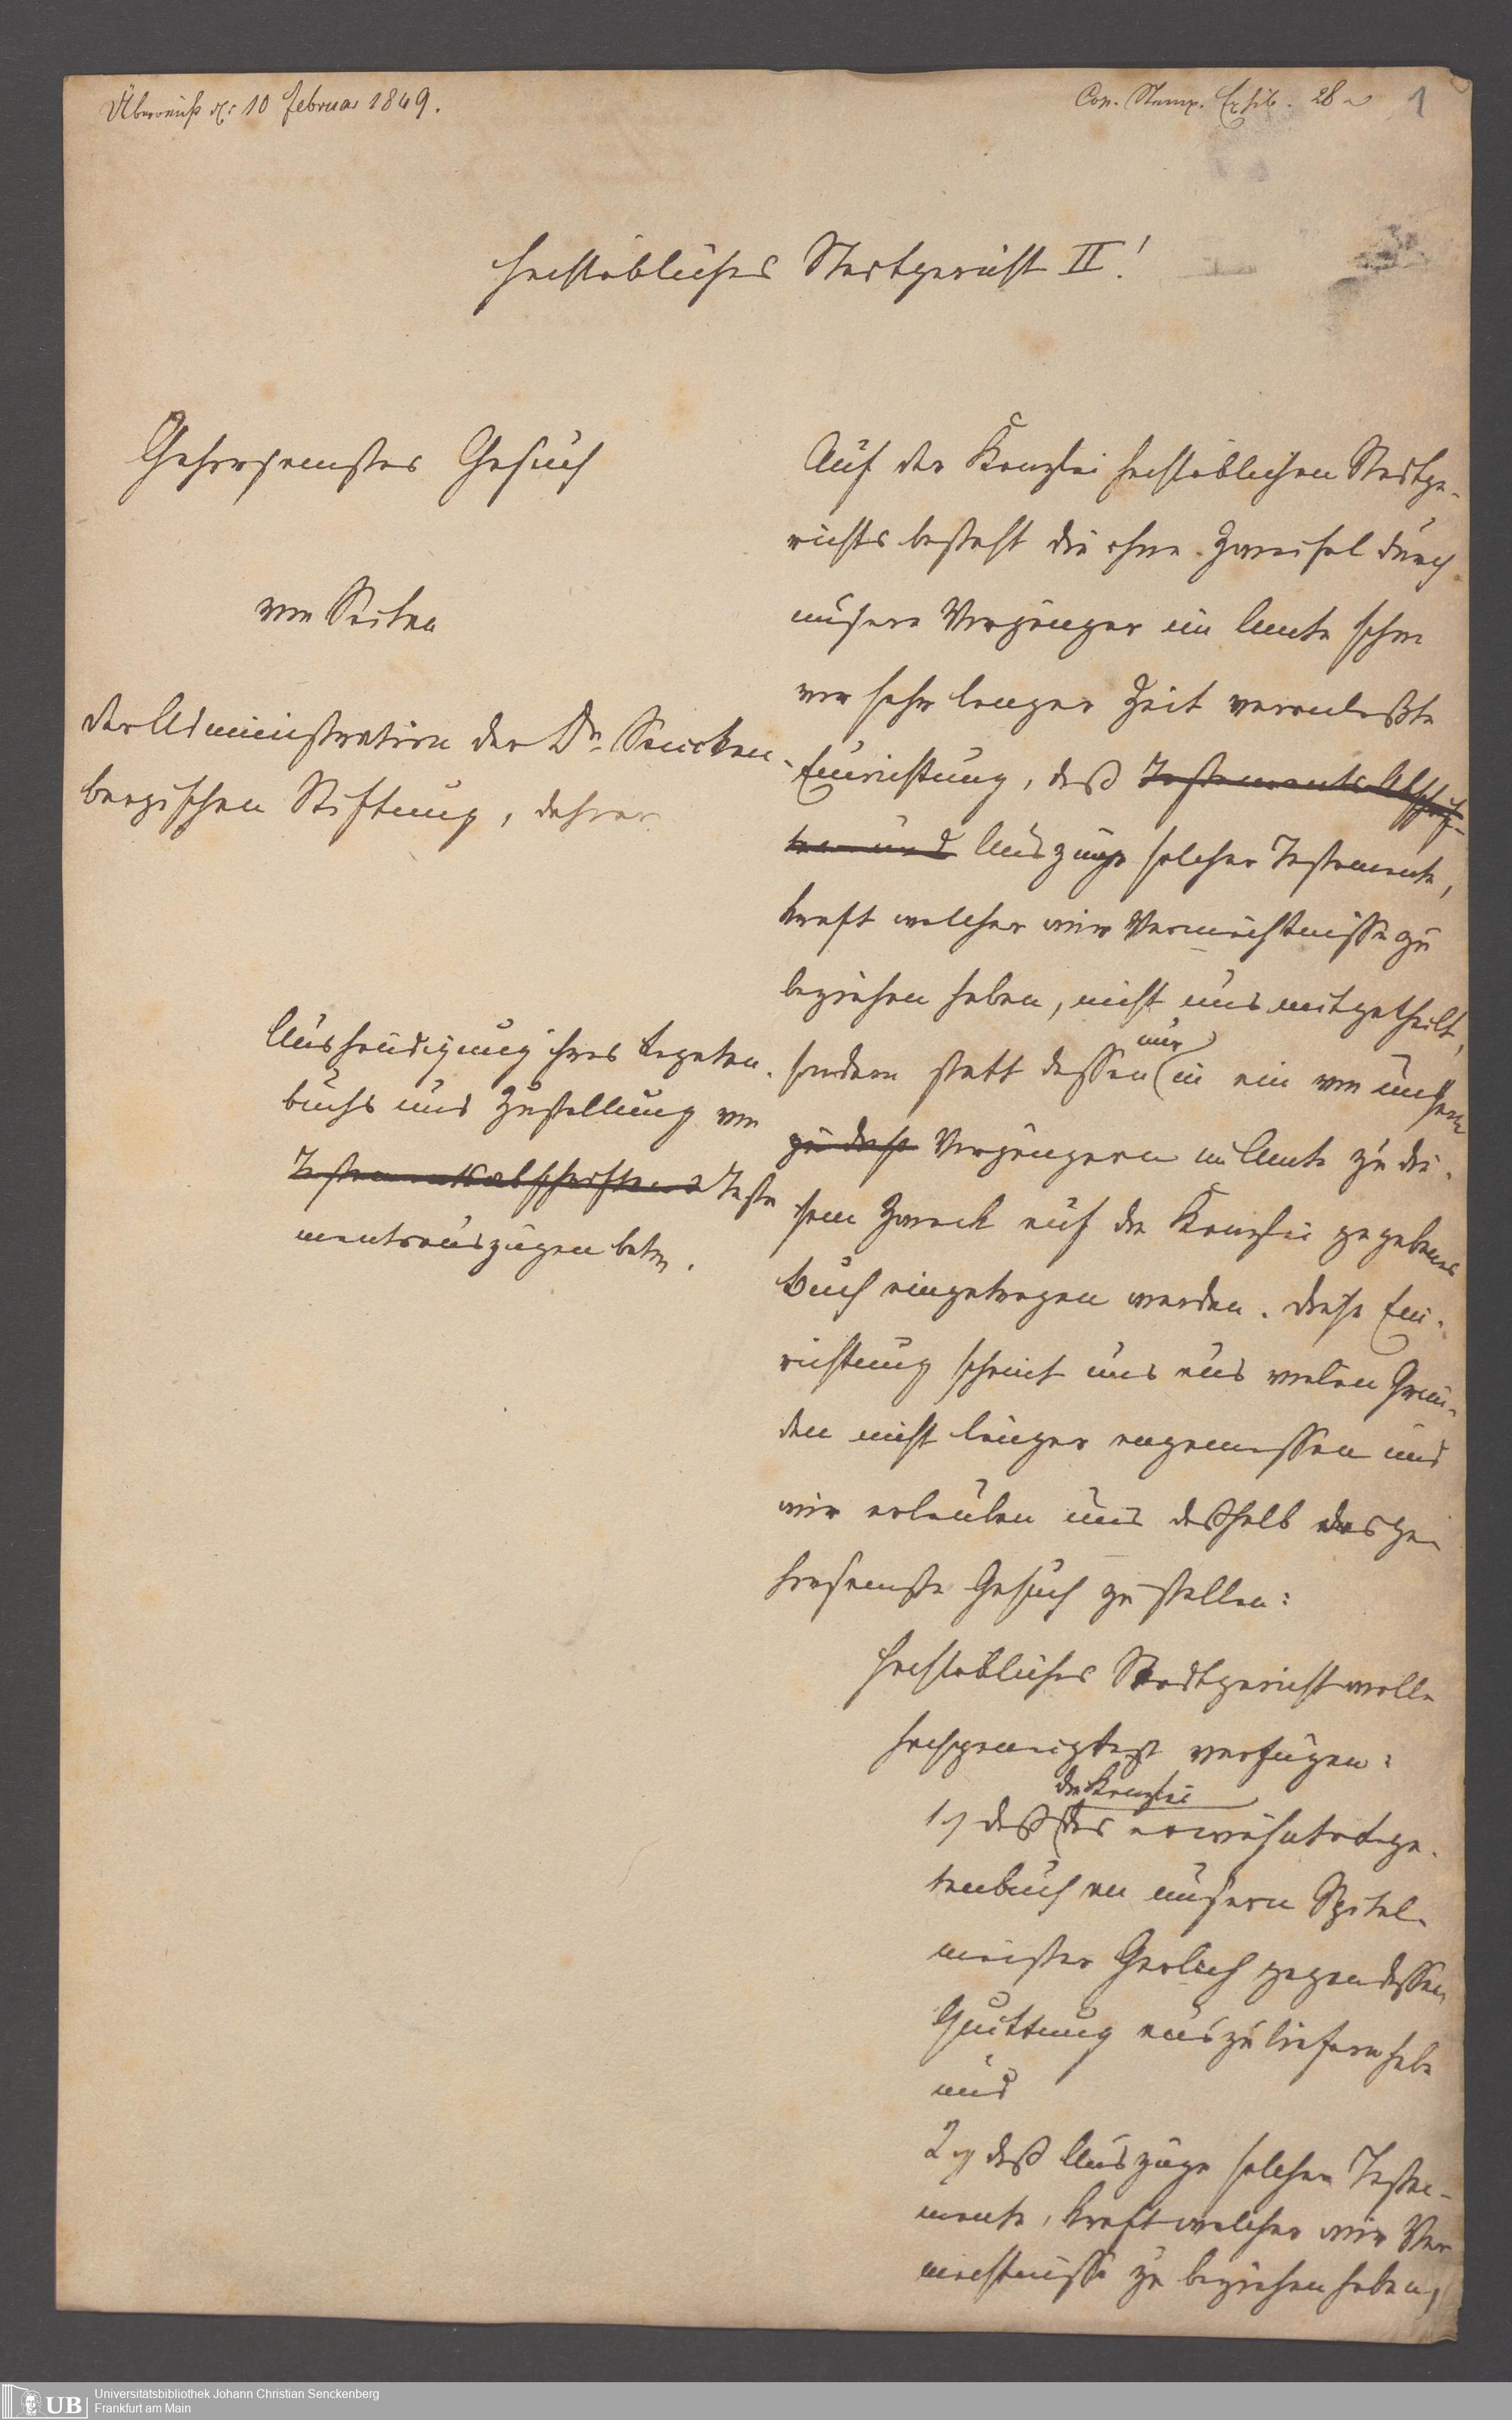 Überreicht d. 10 Februar 1849.
Con. Stemp. Exhib. 28 x
1
Hochlöbliches Stadtgericht II!
Gehorsamstes Gesuch
von Seiten
der Administration der Dr. Sencken-
bergischen Stiftung, dahier
Aushändigung ihres Legaten-
buchs und Zustellung von
Testamentsabschriften u Testa
mentsauszügen betr.
Auf der Kanzlei hochlöblichen Stadtge-
richts besteht die ohne Zweifel durch
unsere Vorgänger im Amte schon
vor sehr langer Zeit veranlaßte
Einrichtung, daß Testaments Abschrif-
ten und Auszüge solcher Testamente,
kraft welcher wir Vermächtnisse zu
beziehen haben, nicht uns mitgetheilt,
nur
sondern statt dessen in ein von unsern
zu diese Vorgängern im Amte zu die-
sem Zweck auf die Kanzlei gegebenes
Buch eingetragen werden. Diese Ein-
richtung scheint uns aus vielen Grün-
den nicht länger angemessen und
wir erlauben uns deßhalb das ge-
horsamste Gesuch zu stellen:
Hochlöbliches Stadtgericht wolle
hochgeneigtest verfügen:
die Kanzlei
1.) daß das erwähnte Lega-
tenbuch an unsern Spital-
meister Gerlach gegen dessen
Quittung auszuliefern habe
und
2.) daß Auszüge solcher Testa-
mente, kraft welcher wir Ver
mächtnisse zu beziehen haben,
UB
Universitätsbibliothek Johann Christian Senckenberg
Frankfurt am Main